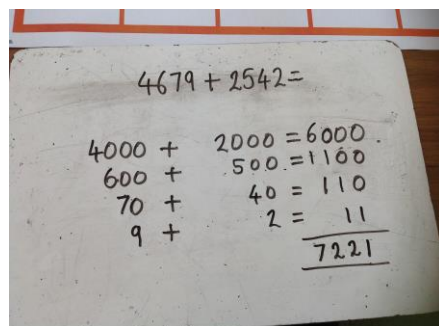 4679 + 2542 =
4000 + 2000 = 6000
600 + 500 = 1100
70 + 40 = 110
9 + 2 = 11
7221